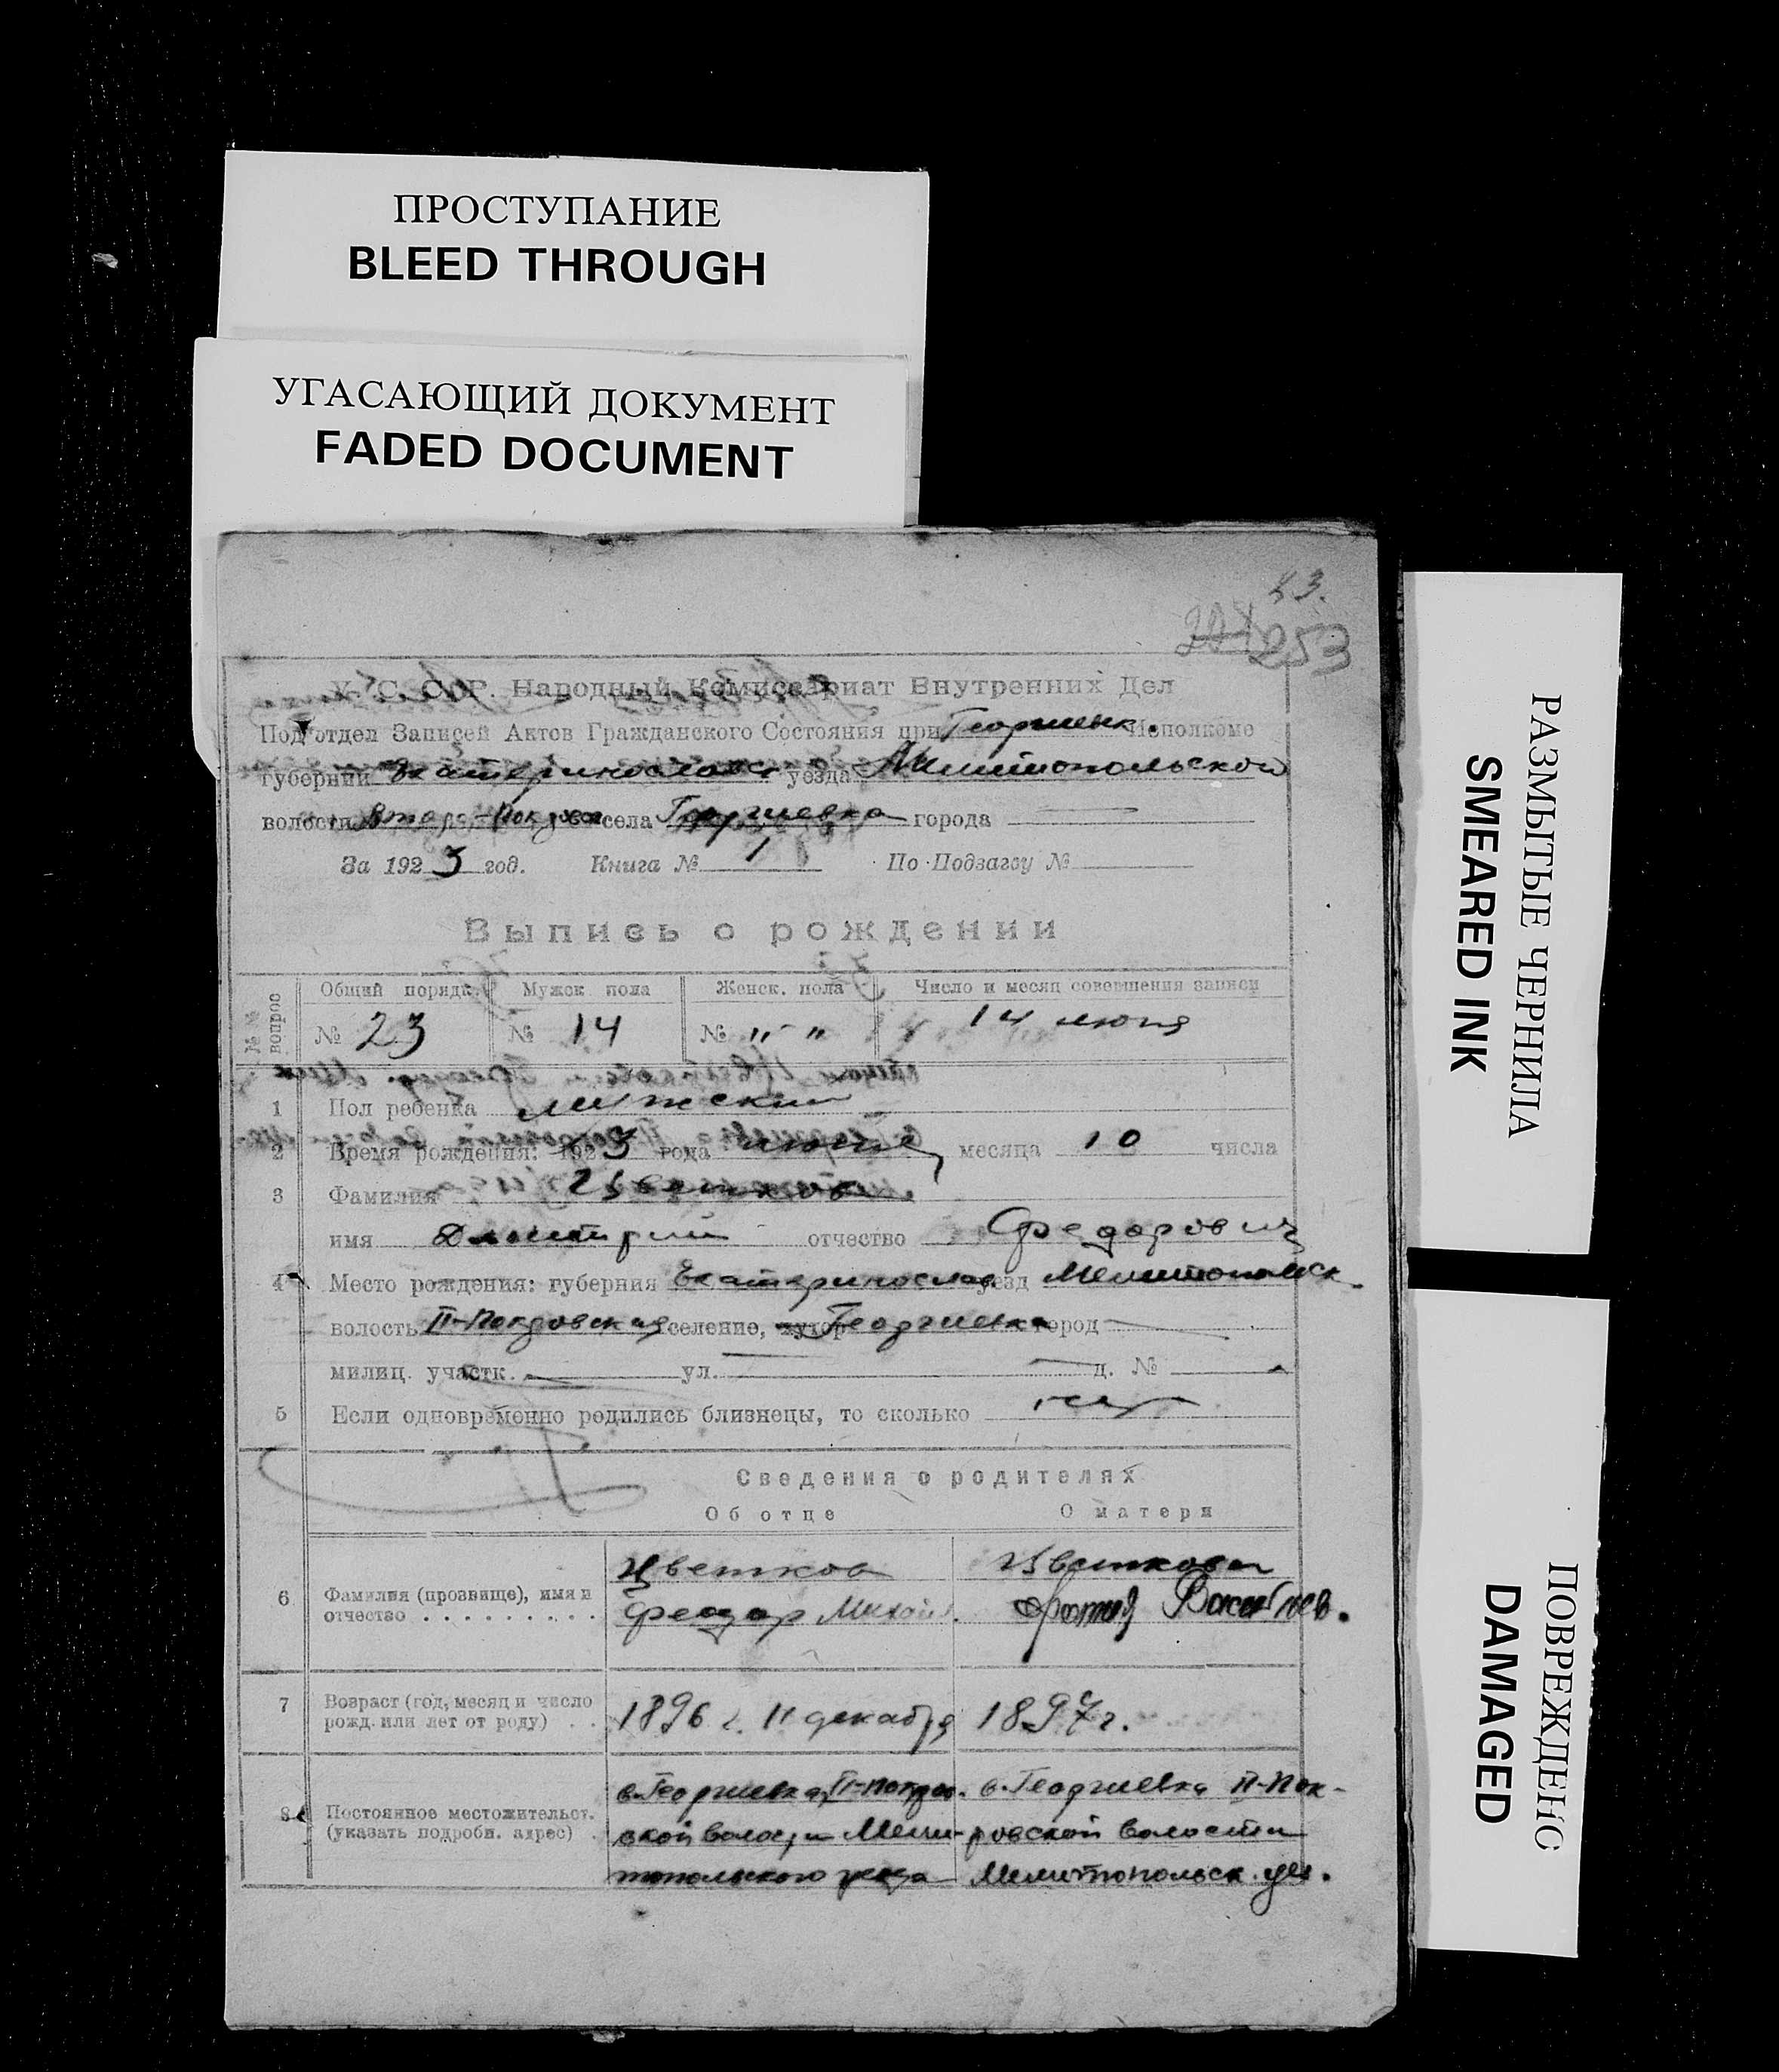 ПРОСТУПАНИЕ
BLEED THROUGH
УГАСАЮЩИЙ ДОКУМЕНТ
FADED DOCUMENT
РАЗМЫТЫЕ ЧЕРНИЛА
SMEARED INK
ПОВРЕЖДЕНО
DAMAGED
253
У. С. С. Р. Народный Комиссариат Внутренних Дел
Под'отдел Записей Актов Гражданского Состояния при Георгиевк. Исполкоме
губернии Екатеринославск уезда Мелитопольской
волости Второ-Покровск села Георгиевка города
За 1923 год. Книга № 1 По Подзагсу №
Выпись о рождении
№№ вопрос
Общий порядк. Мужск. пола Женск. пола Число и месяц совершения записи
№ 23 № 14 № " " 14 июня
1 Пол ребенка мужской
2 Время рождения: 1923 года июня месяца 10 числа
3 Фамилия Цветков
имя Дмитрий отчество Федорович
4 Место рождения: губерния Екатеринослав уезд Мелитопольск.
волость II-Покровская селение, хутор Георгиевка город
милиц. участк. ул. д. №
5 Если одновременно родились близнецы, то сколько нет
Сведения о родителях
Об отце О матери
6 Фамилия (прозвище), имя и отчество Цветков Цветкова
Феодор Михайл. Фотия Васильев.
7 Возраст (год, месяц и число рожд. или лет от роду) 1896 г. 11 декабря 1897 г.
8 Постоянное местожительст. (указать подробн. адрес)
с. Георгиевка, II-Покров- с. Георгиевка II-Пок-
ской волости Мели- ровской волости
топольского уезда Мелитопольск. уез.